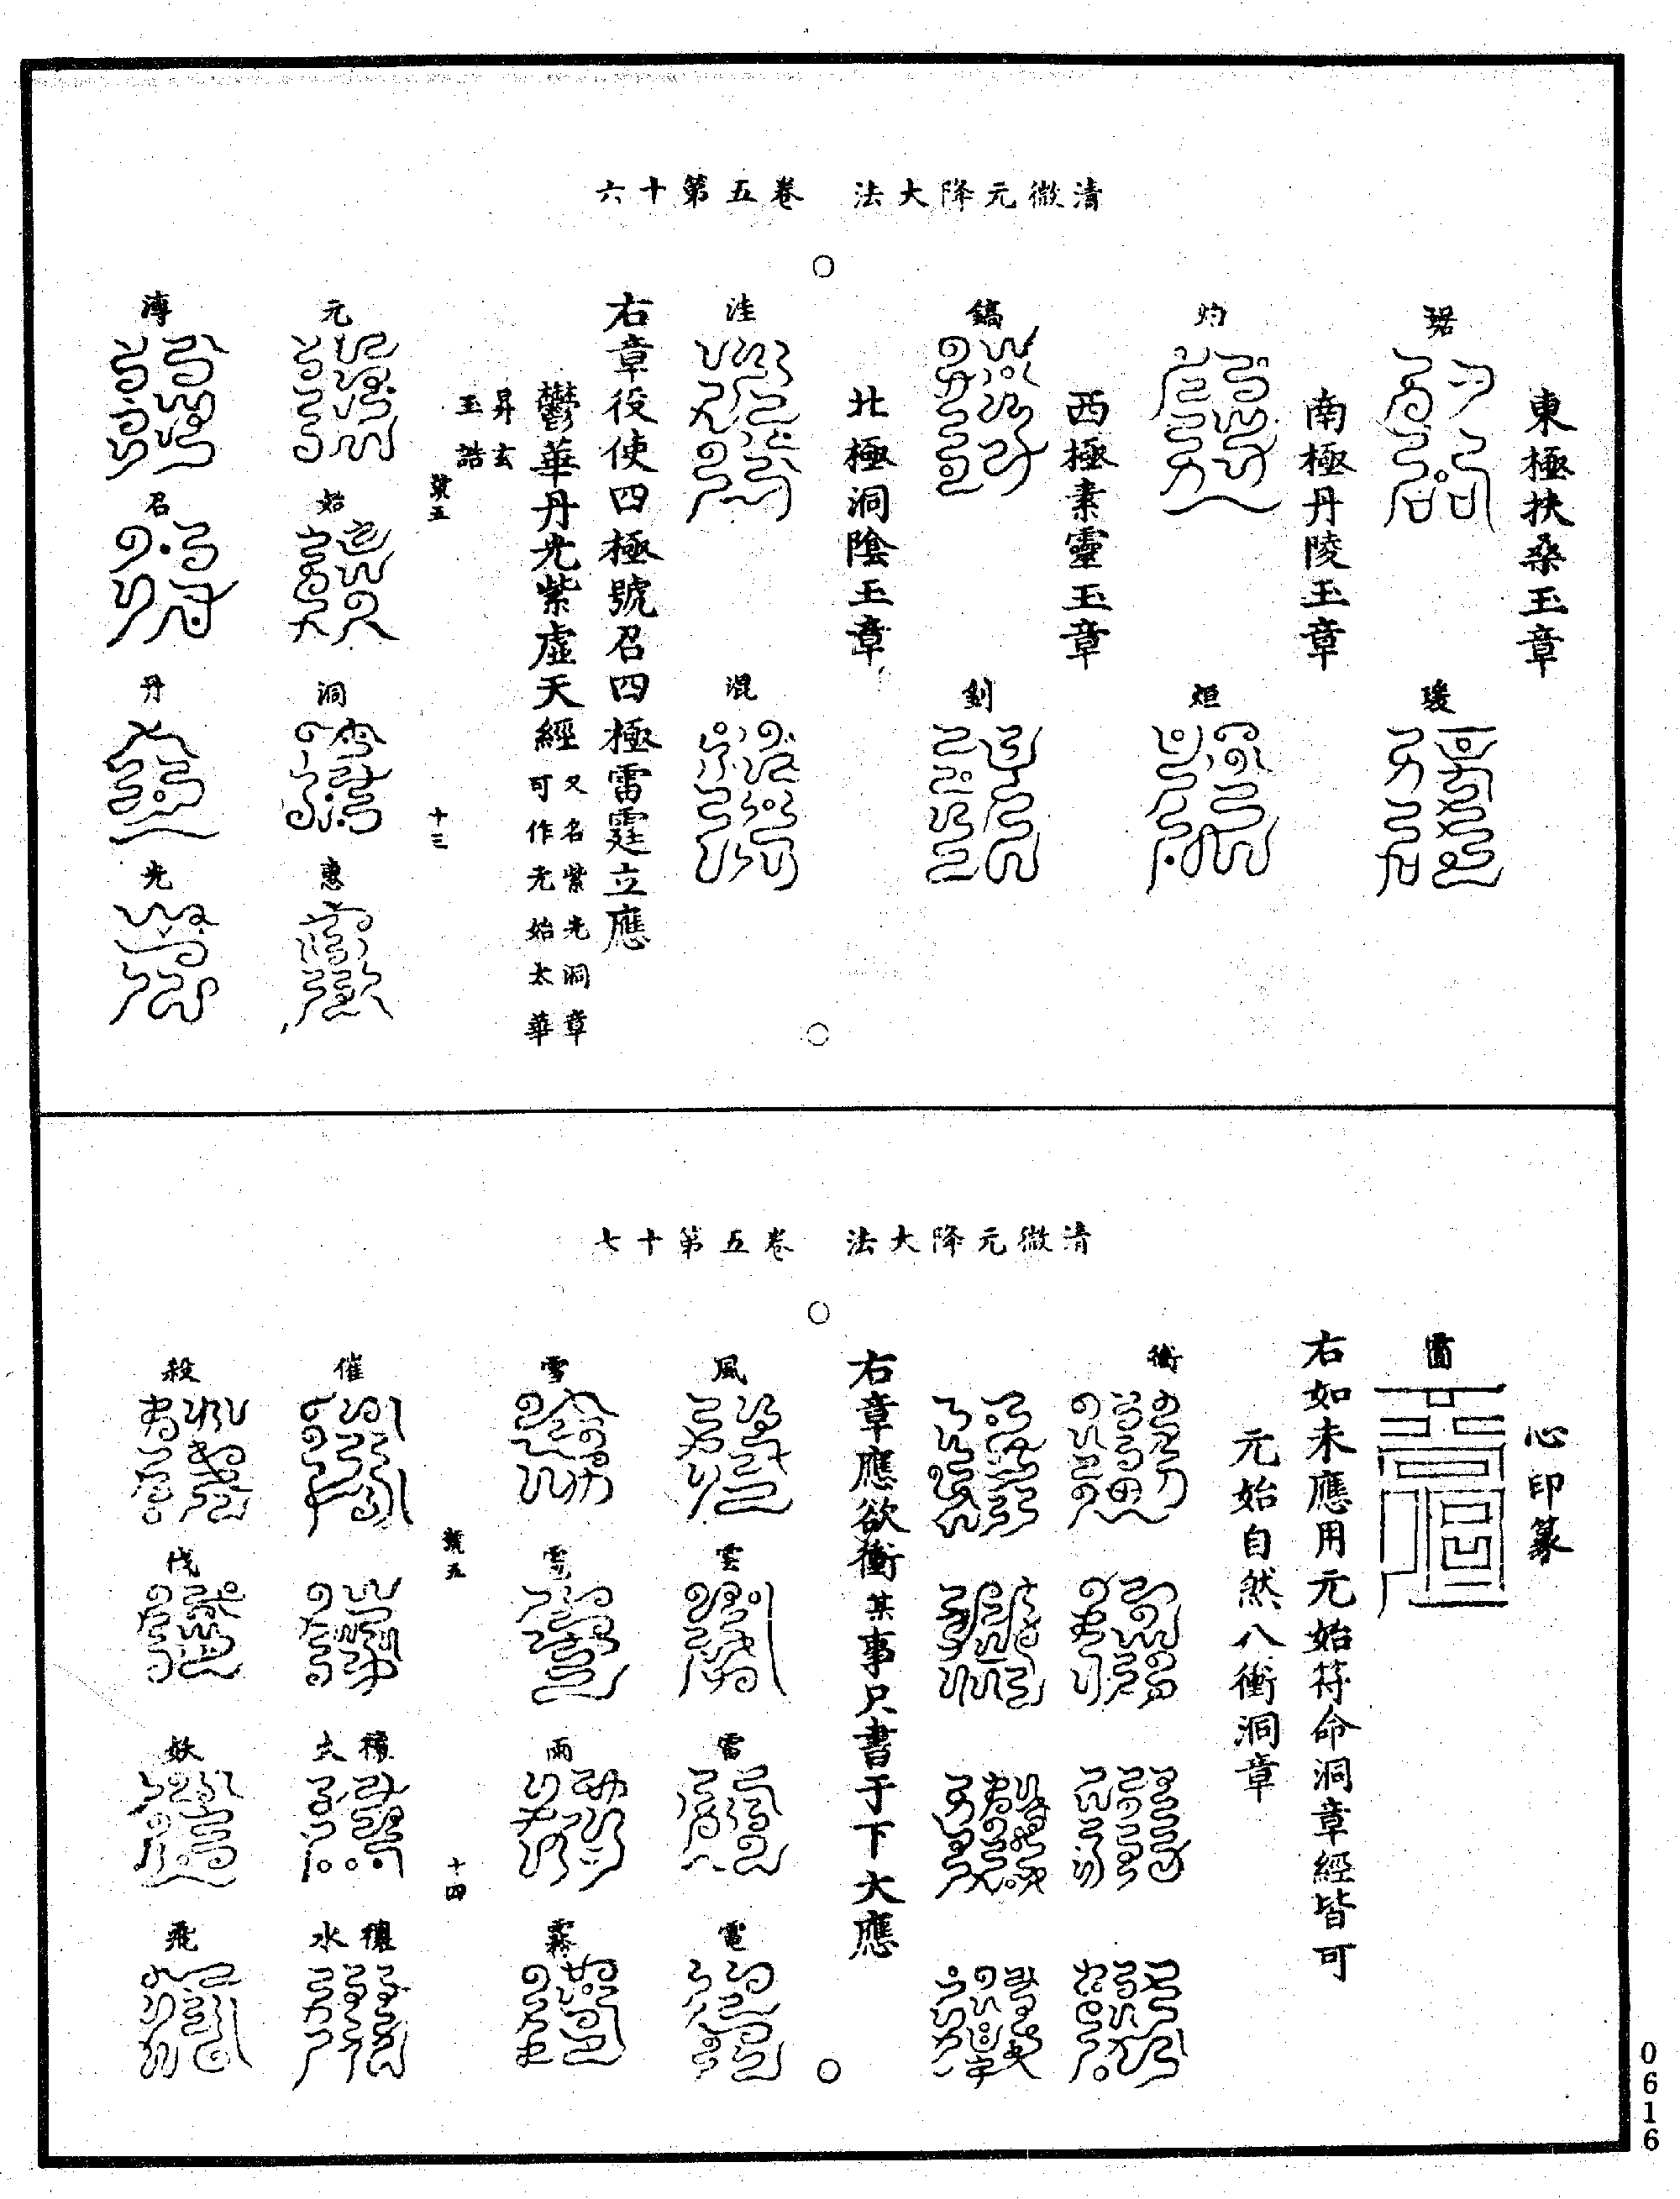 清微元降大法　卷五第十六
東極扶桑玉章
琚
璦
南極丹陵玉章
灼
烜
西極素靈玉章
鎬
釗
北極洞陰玉章
洼
混
右章役使四極號召四極雷霆立應
鬱華丹光紫虛天經又名紫光洞章可作元始太華
昇玄
玉誥
號五　十三
元
始
洞
惠
溥
召
丹
光
清微元降大法　卷五第十七
心印篆
右如未應用元始符命洞章經皆可
元始自然八衝洞章
衝
右章應欲衝某事只書于下大應
風
雲
雷
電
雪
雨
霧
號五　十四
催
水
殺
伐
妖
飛
0616